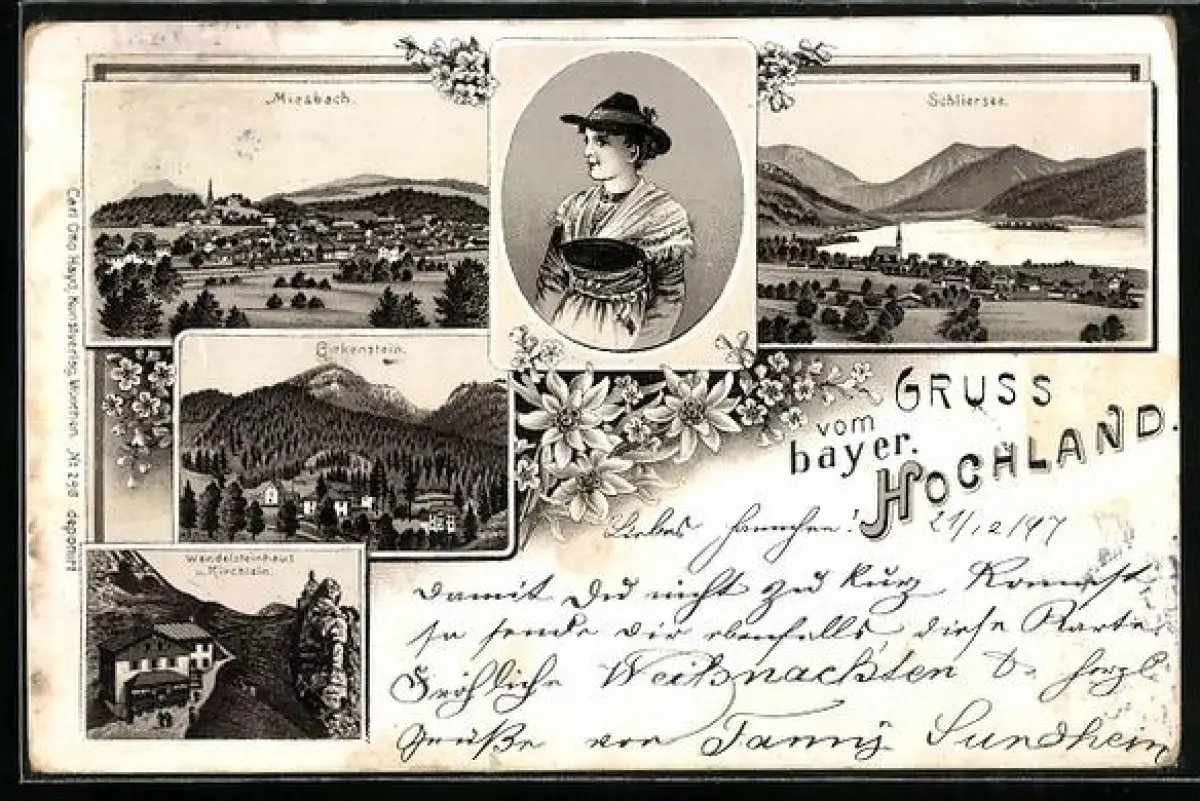 Miesbach.
Schliersee.
Birkenstein.
Wendelsteinhaus
u. Kirchlein.
Carl Otto Hayd, Kunstverlag, München. No 296 deponiert
GRUSS
vom
bayer.
HOCHLAND.
Liebes Hannchen! 21/12/97
Damit Du nicht zu kurz kommst
so sende dir ebenfalls diese Karte
Fröhliche Weihnachten & herzl.
Grüße von Fanny Sundhein